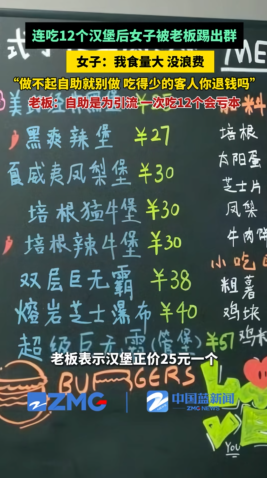 连吃12个汉堡后女子被老板踢出群
女子：我食量大 没浪费
“做不起自助就别做 吃得少的客人你退钱吗”
老板：自助是为引流 一次吃12个会亏本
黑爽辣堡 ¥27
夏威夷凤梨堡 ¥30
培根猛牛堡 ¥30
培根辣牛堡 ¥30
双层巨无霸 ¥38
熔岩芝士瀑布 ¥40
超级巨无霸
ME
培根
太阳蛋
芝士片
凤梨
牛肉饼
小吃
粗薯
鸡块
老板表示汉堡正价25元一个
BURGERS
ZMG
中国蓝新闻
ZMG NEWS
You